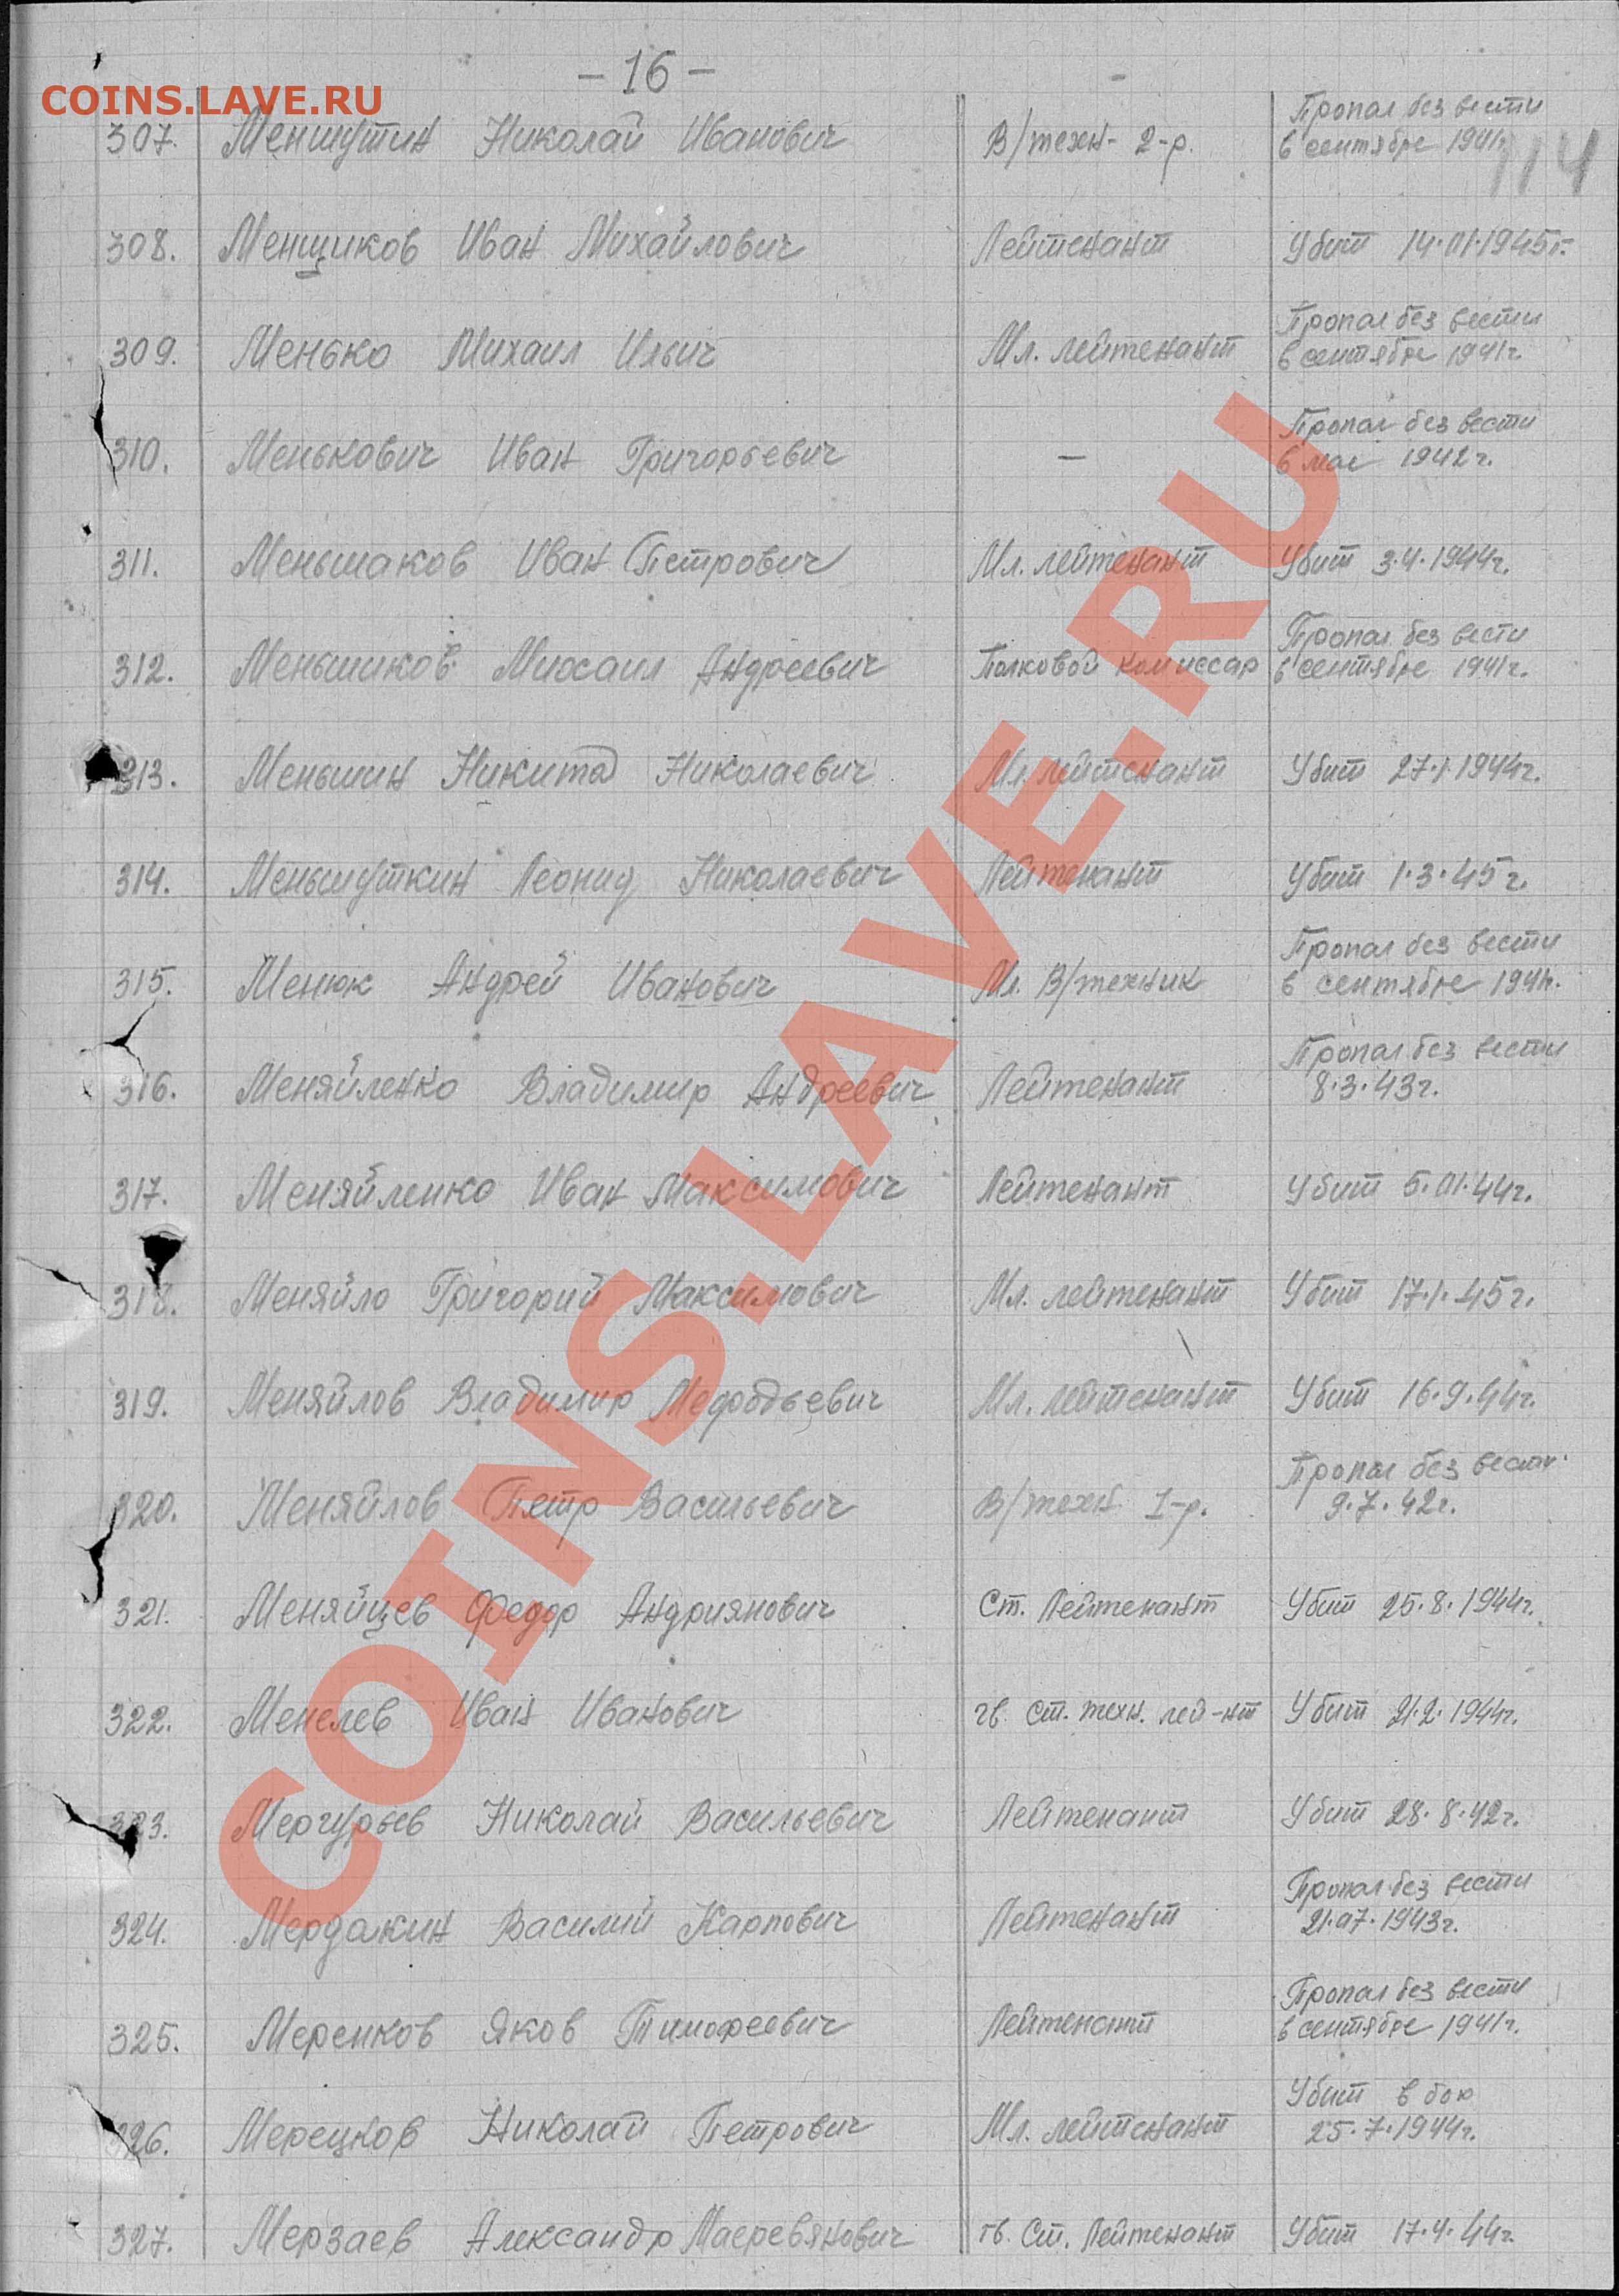 - 16 -
COINS.LAVE.RU
114
307. Меншутин Николай Иванович В/техн- 2-р. Пропал без вести
в сентябре 1941г.
308. Менщиков Иван Михайлович Лейтенант Убит 14.01.1945г.
309. Менько Михаил Ильич Мл. лейтенант Пропал без вести
в сентябре 1941г.
310. Менькович Иван Григорьевич — Пропал без вести
в мае 1942г.
311. Меньшаков Иван Петрович Мл. лейтенант Убит 3.4.1944г.
312. Меньшиков Михаил Андреевич Полковой комиссар Пропал без вести
в сентябре 1941г.
313. Меньшин Никита Николаевич Мл. лейтенант Убит 27.1.1944г.
314. Меньшуткин Леонид Николаевич Лейтенант Убит 1.3.45г.
315. Менюк Андрей Иванович Мл. В/техник Пропал без вести
в сентябре 1941г.
316. Меняйленко Владимир Андреевич Лейтенант Пропал без вести
8.3.43г.
317. Меняйленко Иван Максимович Лейтенант Убит 5.01.44г.
318. Меняйло Григорий Максимович Мл. лейтенант Убит 17.1.45г.
319. Меняйлов Владимир Мефодьевич Мл. лейтенант Убит 16.9.44г.
320. Меняйлов Петр Васильевич В/техн 1-р. Пропал без вести
9.7.42г.
321. Меняйцев Федор Андриянович Ст. Лейтенант Убит 25.8.1944г.
322. Менелев Иван Иванович гв. Ст. техн. лей-нт Убит 21.2.1944г.
323. Мергурьев Николай Васильевич Лейтенант Убит 28.8.42г.
324. Мердакин Василий Карпович Лейтенант Пропал без вести
21.07.1943г.
325. Меренков Яков Тимофеевич Лейтенант Пропал без вести
в сентябре 1941г.
326. Мерецков Николай Петрович Мл. лейтенант Убит в бою
25.7.1944г.
327. Мерзаев Александр гв. Ст. Лейтенант Убит 17.4.44г.
COINS.LAVE.RU